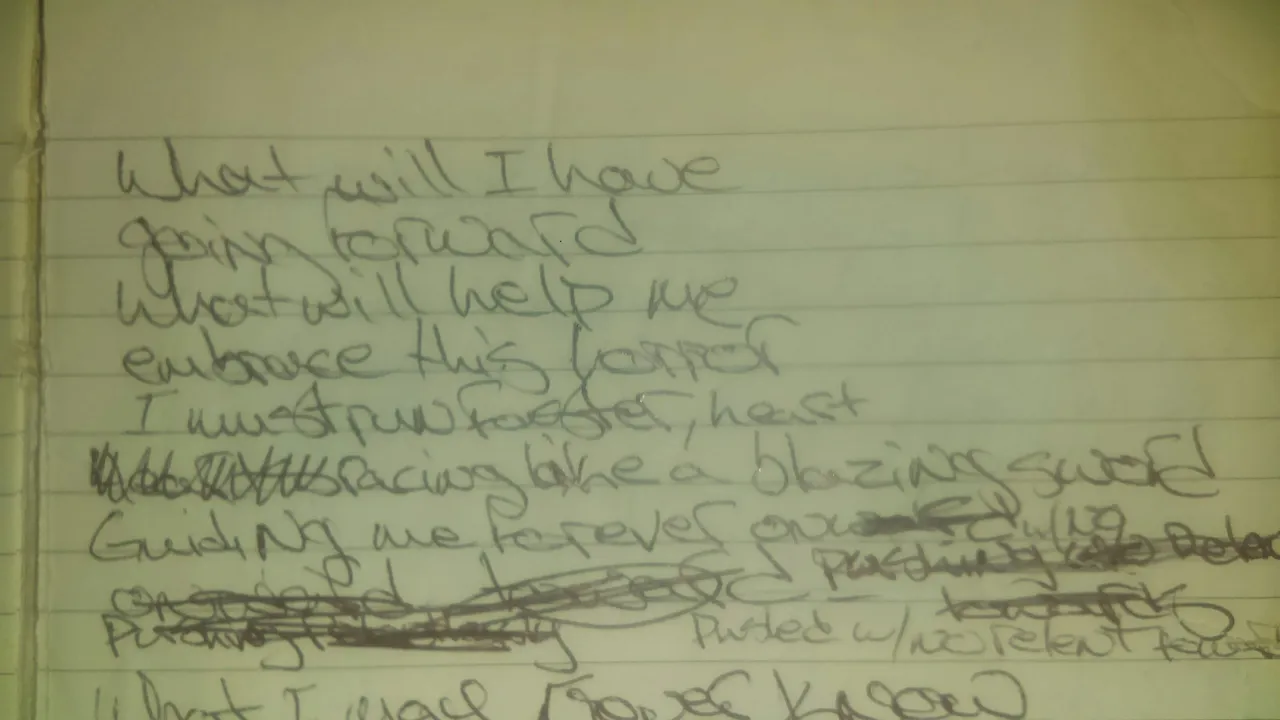 What will I have
going forward
What will help me
embrace this horror
I must run faster, heart
racing like a blazing sword
Guiding me forever w/no
pushing
Pushing
Pushed w/no relent toward
What I may never know